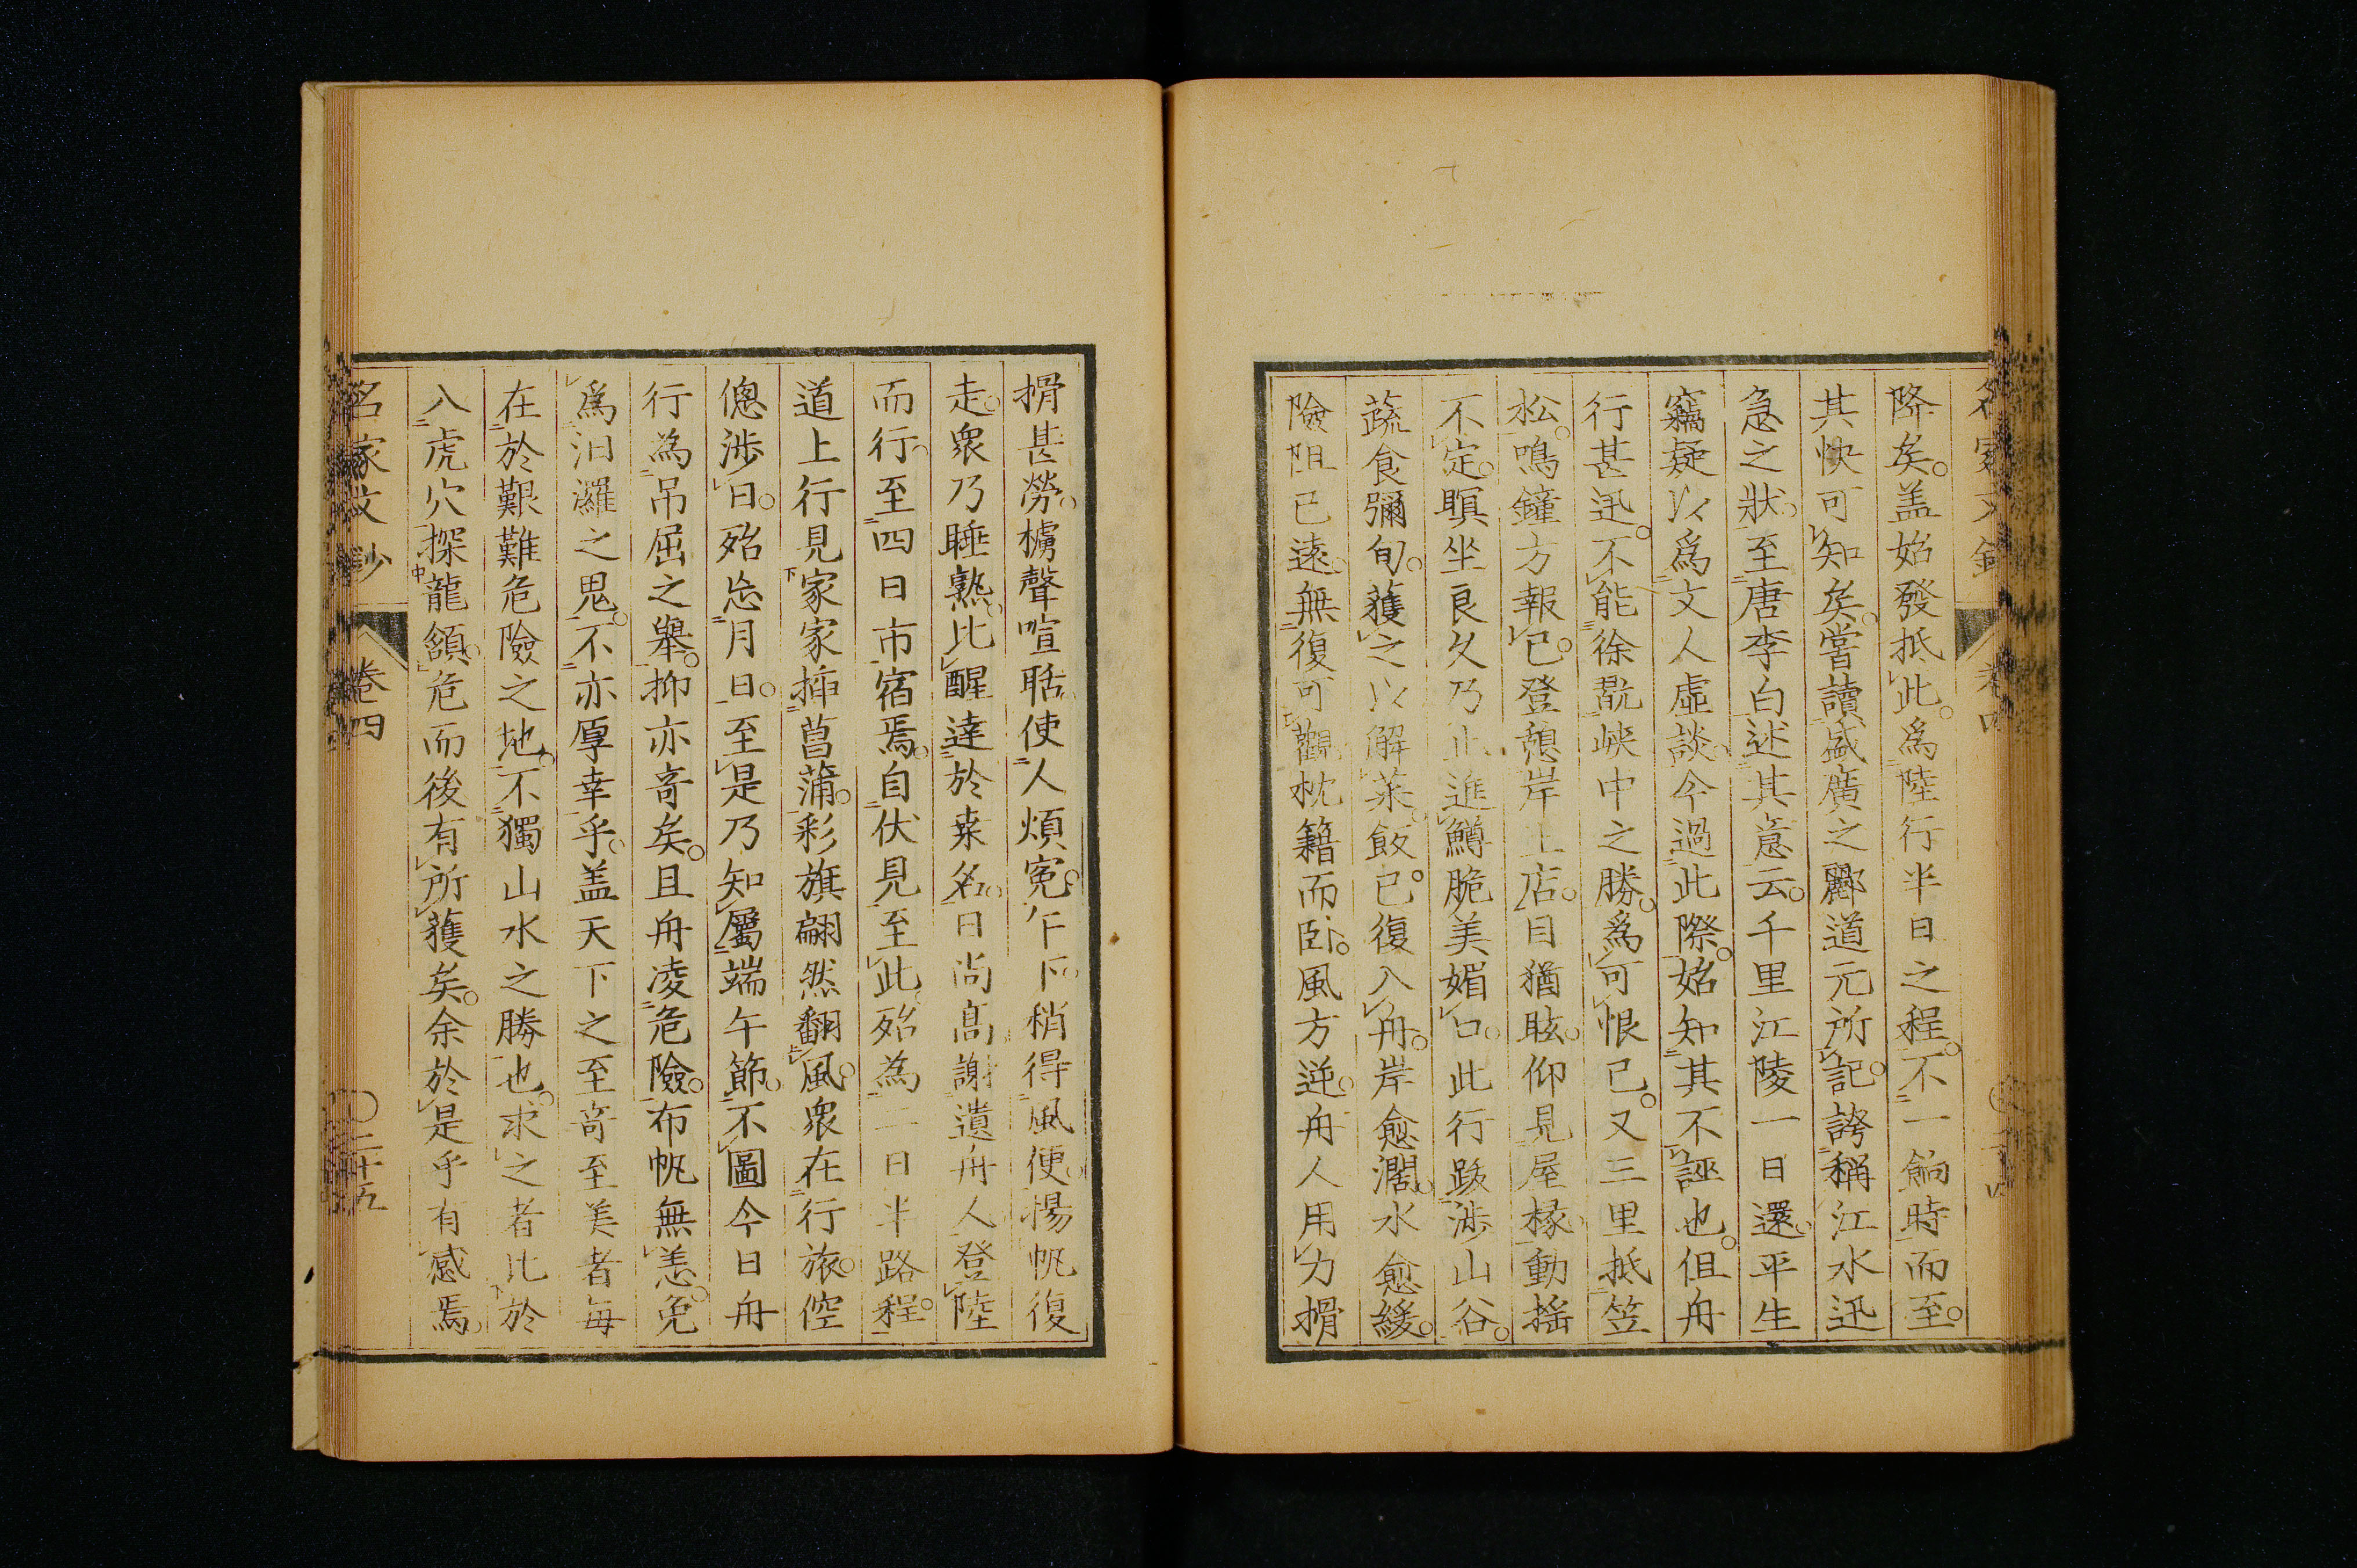 降矣。盖始發抵此。爲陸行半日之程。不一餉時而至。
其快可知矣。嘗讀盛廣之酈道元所記。誇稱江水迅
急之狀。至唐李白述其意云。千里江陵一日還。平生
竊疑以爲文人虛談。今過此際。始知其不誣也。但舟
行甚迅。不能徐翫峽中之勝。爲可恨已。又三里抵笠
松。鳴鐘方報巳。登憩岸上店。目猶眩。仰見屋椽動搖
不定。瞑坐良久乃止。進鱒脆美媚口。此行跋涉山谷。
蔬食彌旬。獲之以解菜飯已。復入舟。岸愈濶。水愈緩。
險阻已遠。無復可觀。枕籍而臥。風方逆。舟人用力搰
搰甚勞。櫓聲喧聒。使人煩寃。乍下。稍得風便。揚帆復
走。衆乃睡熟。比醒達於桒名。日尚高。謝遺舟人登陸
而行。至四日市宿焉。自伏見至此殆為二日半路程。
道上行見家家揷菖蒲。彩旗翩然翻風。衆在行旅。倥
傯涉日。殆忘月日。至是乃知屬端午節。不圖今日舟
行為吊屈之舉。抑亦奇矣。且舟凌危險。布帆無恙。免
爲汨羅之鬼。不亦厚幸乎。盖天下之至奇至美者每
在於艱難危險之地。不獨山水之勝也。求之者比於
入虎穴探龍頷。危而後有所獲矣。余於是乎有感焉。
名家文鈔
卷四
二十五